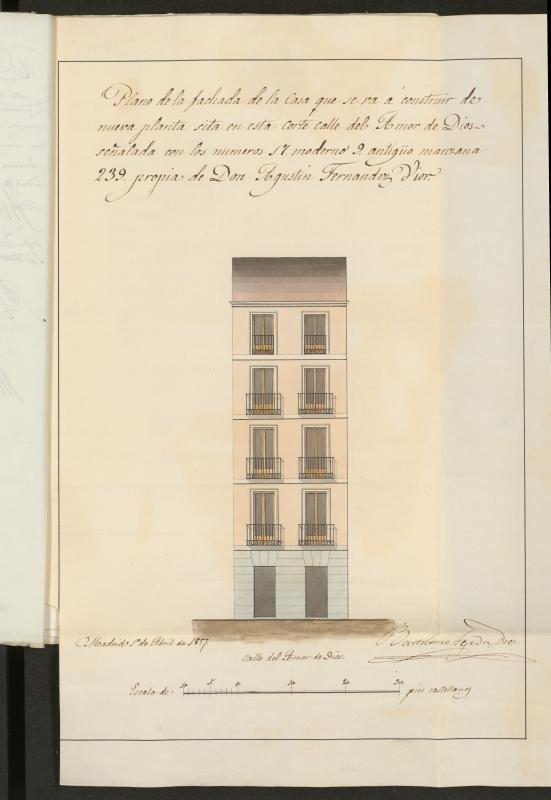 Plano de la fachada de la Casa que se va á construir de
nueva planta sita en esta Corte calle del Amor de Dios
señalada con los numeros 17 moderno 9 antigüo manzana
239 propia de Don Agustin Fernandez
Madrid 1º de Abril de 1857
Bartolomé Tejeda Diez
Calle del Amor de Dios.
Escala de 10 5 0 10 20 30 pies castellanos